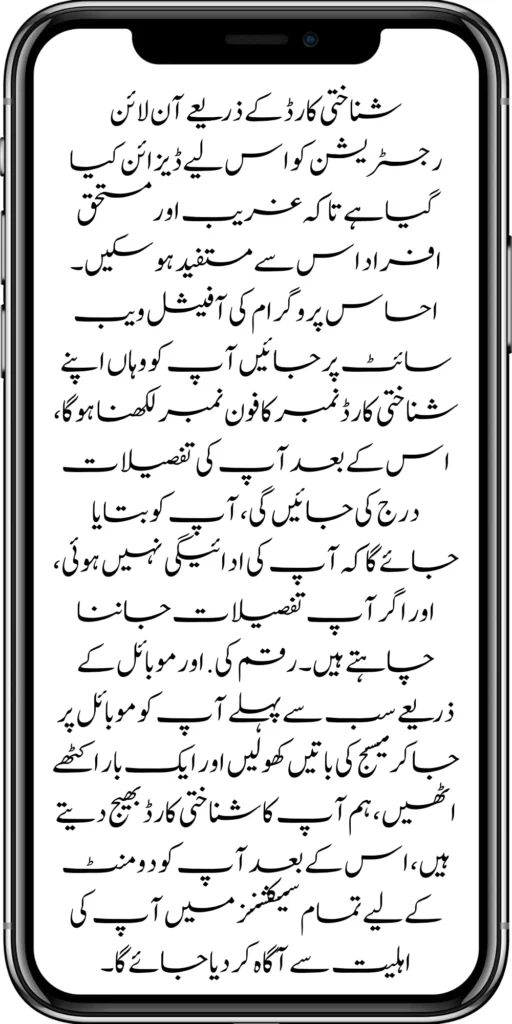 شناختی کارڈ کے ذریعے آن لائن
رجسٹریشن کو اس لیے ڈیزائن کیا
گیا ہے تاکہ غریب اور مستحق
افراد اس سے مستفید ہو سکیں۔
احساس پروگرام کی آفیشل ویب
سائٹ پر جائیں آپ کو وہاں اپنے
شناختی کارڈ نمبر کا فون نمبر لکھنا ہوگا،
اس کے بعد آپ کی تفصیلات
درج کی جائیں گی، آپ کو بتایا
جائے گا کہ آپ کی ادائیگی نہیں ہوئی،
اور اگر آپ تفصیلات جاننا
چاہتے ہیں۔ رقم کی. اور موبائل کے
ذریعے سب سے پہلے آپ کو موبائل پر
جا کر میسج کی باتیں کھولیں اور ایک بار اکٹھے
اٹھیں، ہم آپ کا شناختی کارڈ بھیج دیتے
ہیں، اس کے بعد آپ کو دو منٹ
کے لیے تمام سیکشنز میں آپ کی
اہلیت سے آگاہ کر دیا جائے گا۔